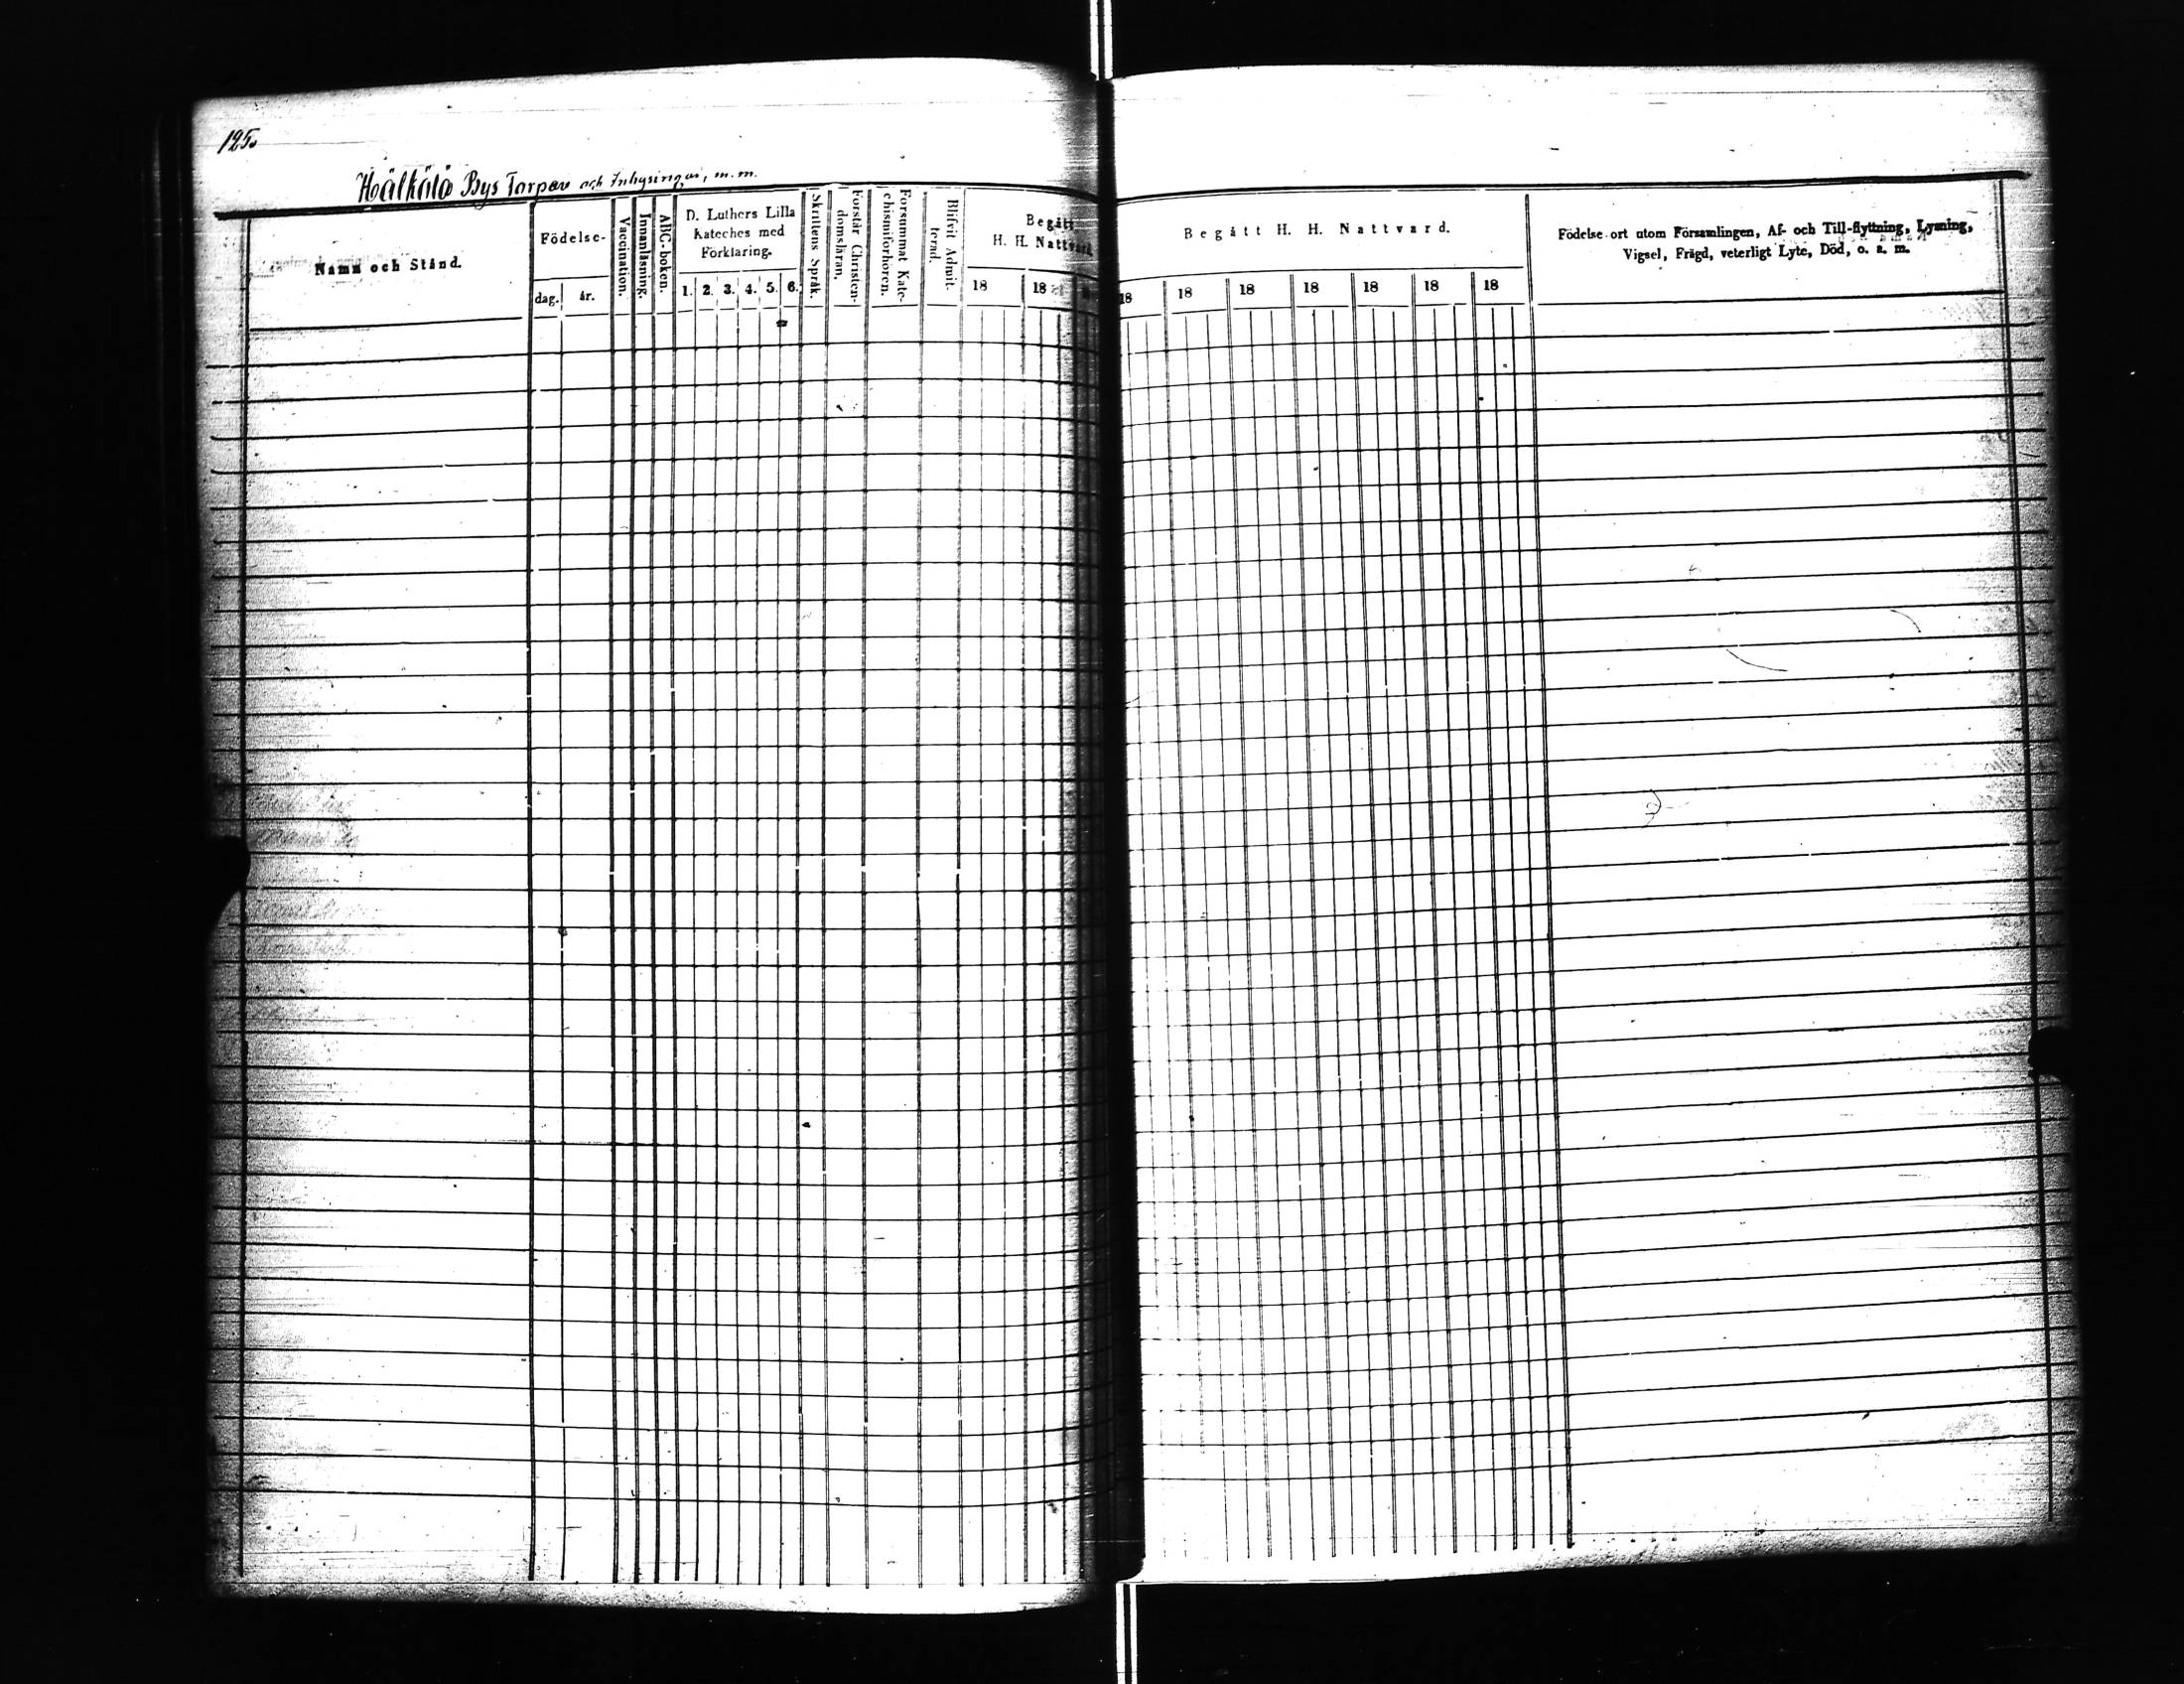 125.
Hälkälä Bys Torpare och Inhysingar, m. m.
Namn och Stånd.
Födelse-
dag.
år.
Vaccination.
Innanläsning.
ABC-boken.
D. Luthers Lilla
Kateches med
Förklaring.
1. 2. 3. 4. 5. 6.
Skriftens Språk.
Förstår Christen-
domsläran.
Försummat Kate-
chismiförhören.
Blifvit Admit-
terad.
Begått
H. H. Nattvard
18 18
Begått H. H. Nattvard.
18 18 18 18 18 18 18
Födelse-ort utom Församlingen, Af- och Till-flyttning, Lysning,
Vigsel, Frägd, veterligt Lyte, Död, o. s. m.